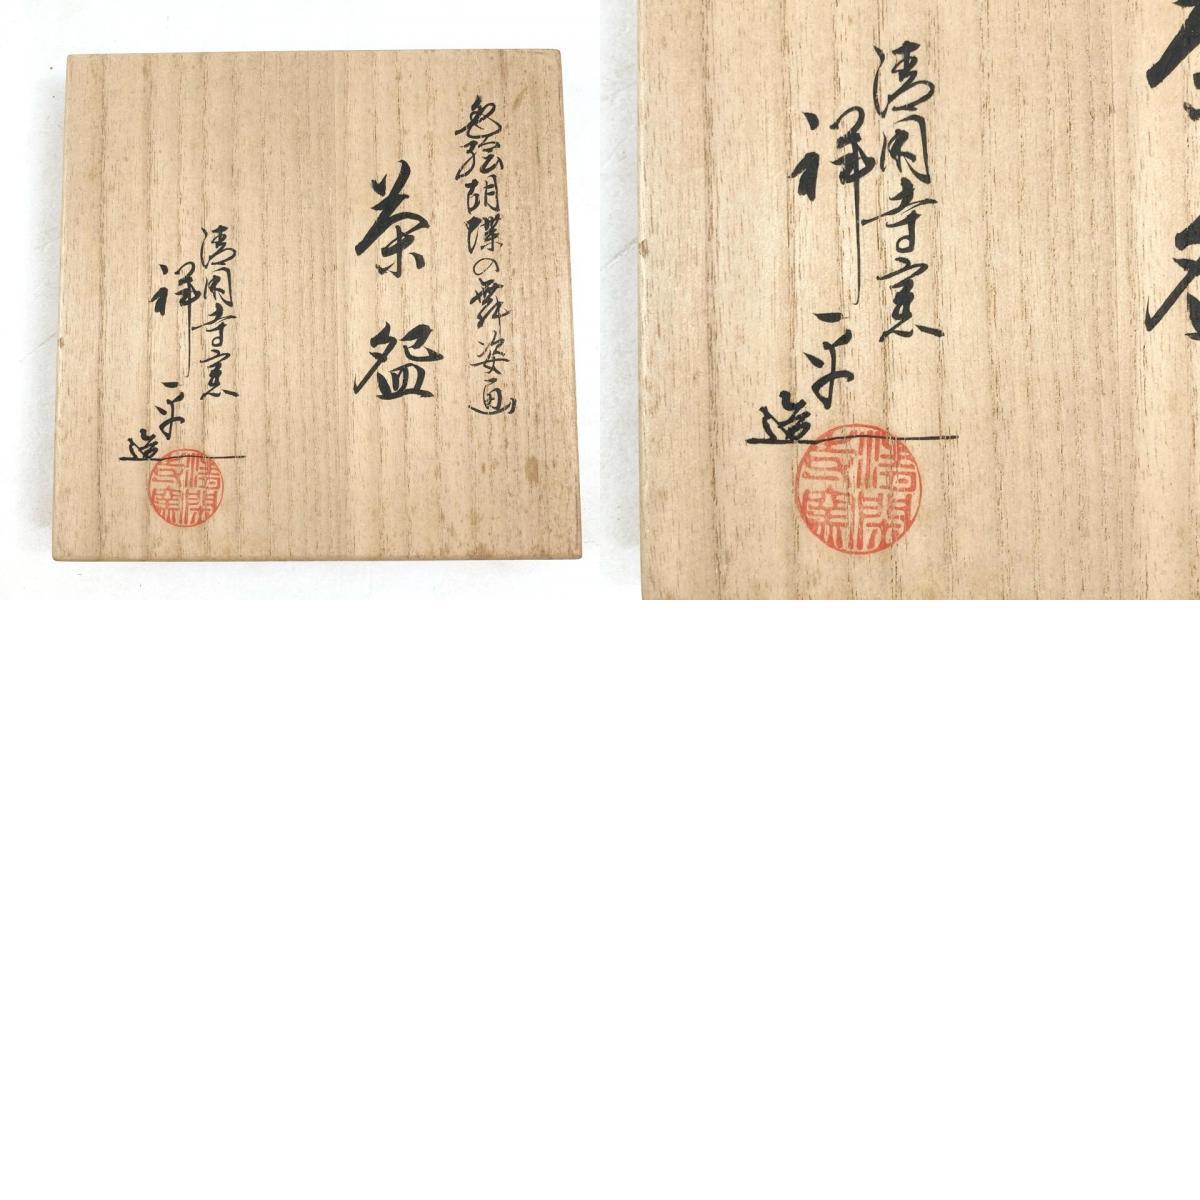 色絵胡蝶の舞姿画
茶盌
清閑寺窯
祥平造
清閑寺窯
清閑寺窯
祥平造
清閑寺窯